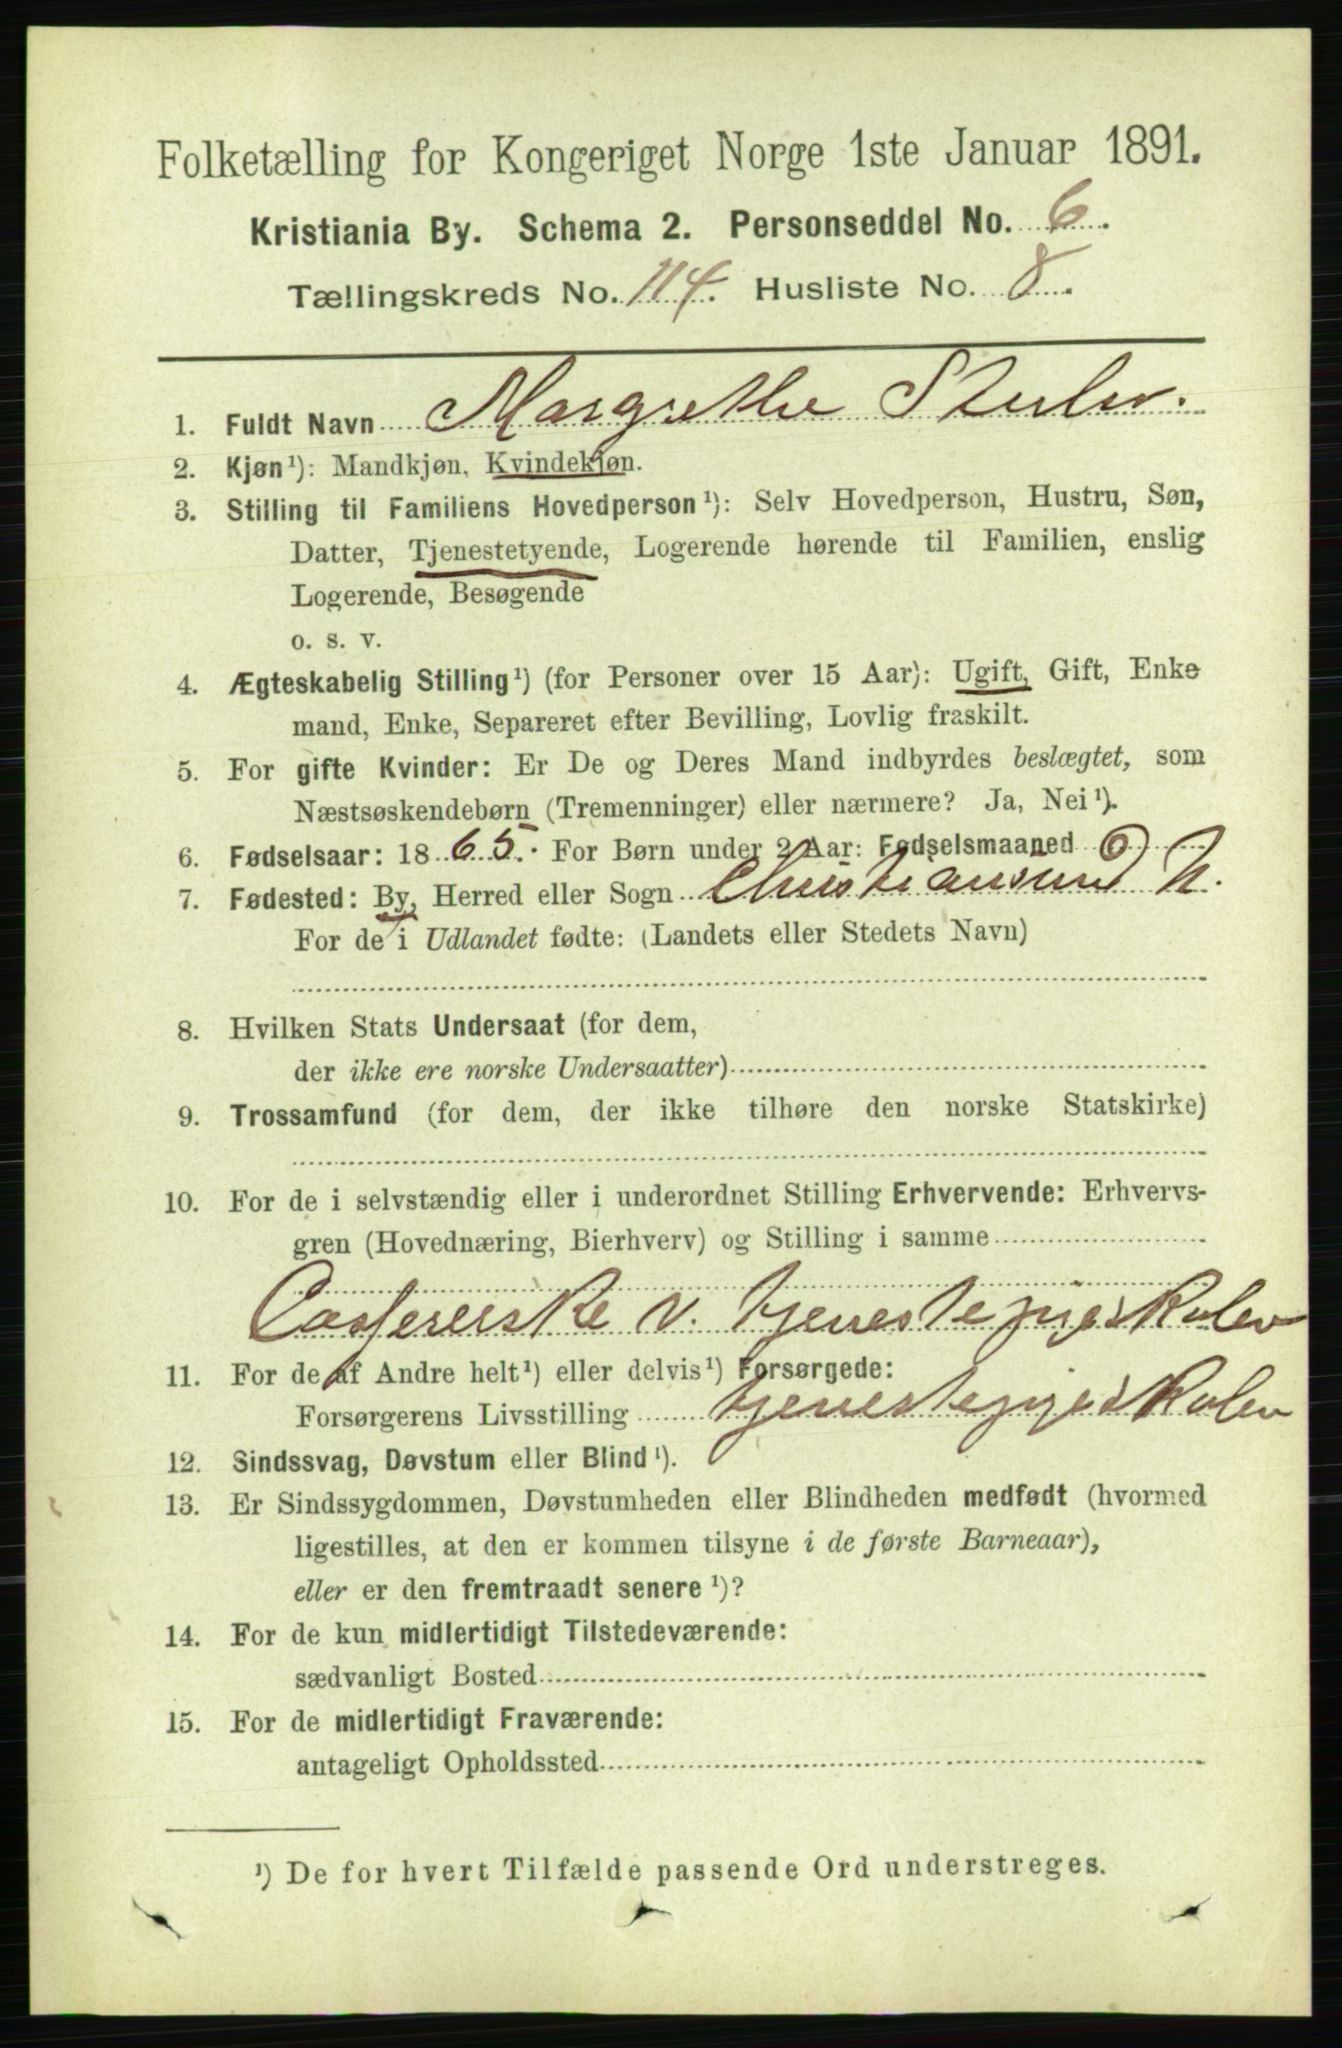 Folketælling for Kongeriget Norge 1ste Januar 1891.
Kristiania By. Schema 2. Personseddel No. 6.
Tællingskreds No. 114. Husliste No. 8.
1. Fuldt Navn Margrethe
2. Kjøn¹): Mandkjøn, Kvindekjøn.
3. Stilling til Familiens Hovedperson¹): Selv Hovedperson, Hustru, Søn,
Datter, Tjenestetyende, Logerende hørende til Familien, enslig
Logerende, Besøgende
o. s. v.
4. Ægteskabelig Stilling¹) (for Personer over 15 Aar): Ugift, Gift, Enke-
mand, Enke, Separeret efter Bevilling, Lovlig fraskilt.
5. For gifte Kvinder: Er De og Deres Mand indbyrdes beslægtet, som
Næstsøskendebørn (Tremenninger) eller nærmere? Ja, Nei¹).
6. Fødselsaar: 1865. For Børn under 2 Aar: Fødselsmaaned
7. Fødested: By, Herred eller Sogn Christiansund N.
For de i Udlandet fødte: (Landets eller Stedets Navn)
8. Hvilken Stats Undersaat (for dem,
der ikke ere norske Undersaatter)
9. Trossamfund (for dem, der ikke tilhøre den norske Statskirke)
10. For de i selvstændig eller i underordnet Stilling Erhvervende: Erhvervs-
gren (Hovednæring, Bierhverv) og Stilling i samme
v. tjenestepigeskolen
11. For de af Andre helt¹) eller delvis¹) Forsørgede:
Forsørgerens Livsstilling tjenestepigeskolen
12. Sindssvag, Døvstum eller Blind¹).
13. Er Sindssygdommen, Døvstumheden eller Blindheden medfødt (hvormed
ligestilles, at den er kommen tilsyne i de første Barneaar),
eller er den fremtraadt senere¹)?
14. For de kun midlertidigt Tilstedeværende:
sædvanligt Bosted
15. For de midlertidigt Fraværende:
antageligt Opholdssted
¹) De for hvert Tilfælde passende Ord understreges.